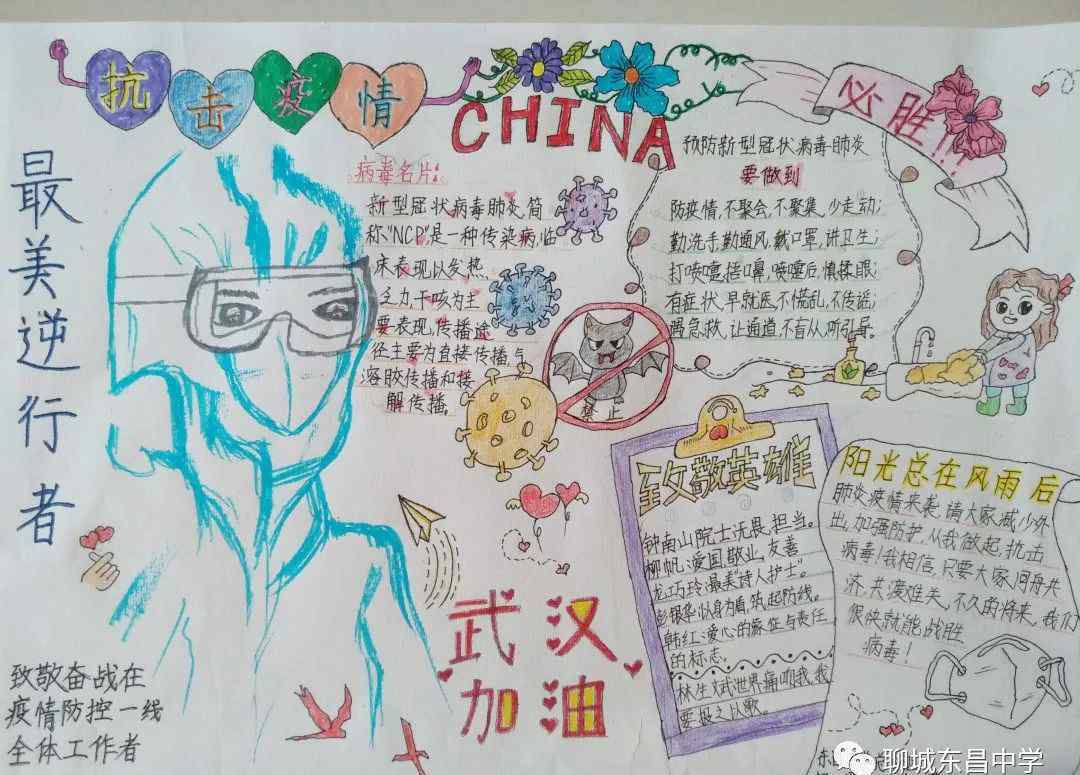 抗击疫情
CHINA
必胜!!!
最美逆行者
病毒名片:
新型冠状病毒肺炎,简
称“NCP”,是一种传染病,临
床表现以发热,
乏力干咳为主
要表现,传播途
径主要为直接传播,气
溶胶传播和接
解传播
预防新型冠状病毒肺炎
要做到
防疫情,不聚会,不聚集,少走动;
勤洗手,勤通风,戴口罩,讲卫生;
打喷嚏,捂口鼻,喷嚏后,慎揉眼;
有症状,早就医,不慌乱,不传谣;
遇急救,让通道,不盲从,听引导。
禁止
致敬英雄
钟南山院士:无畏,担当。
柳帆:爱国,敬业,友善
龙巧玲:最美“诗人护士”。
彭银华:以身为盾,筑起防线。
韩红:爱心的象征与责任
的标志。
林生斌:世界痛吻我,我
要报之以歌
阳光总在风雨后
肺炎疫情来袭,请大家减少外
出,加强防护,从我做起,抗击
病毒!我相信,只要大家同舟共
济,共渡难关,不久的将来,我们
很快就能战胜
病毒!
武汉
加油
致敬奋战在
疫情防控一线
全体工作者
聊城东昌中学